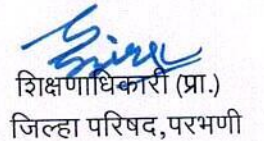 शिक्षणाधिकारी (प्रा.)
जिल्हा परिषद,परभणी